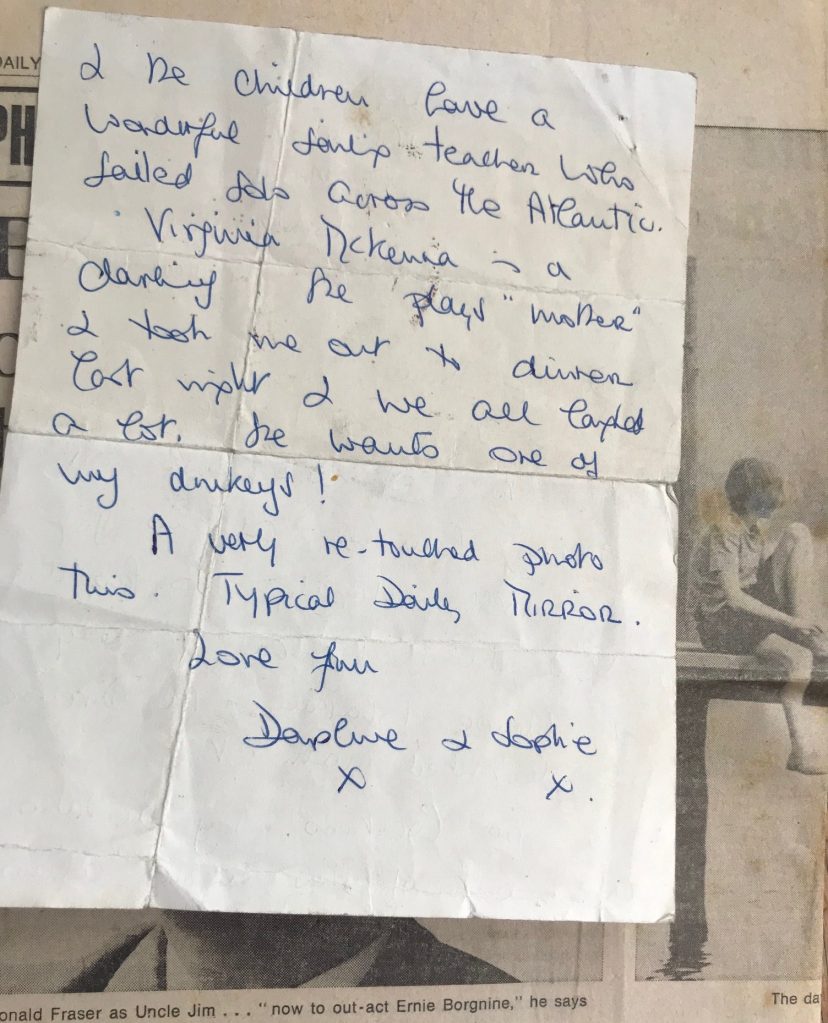 DAILY
PH
& the children have a
wonderful sailing teacher who
sailed solo across the Atlantic.
Virginia McKenna is a
darling she plays "mother"
& took me out to dinner
last night & we all laughed
a lot. She wants one of
my donkeys!
A very re-touched photo
this. Typical Daily MIRROR.
Love from
Daphne & Sophie
x x.
onald Fraser as Uncle Jim . . . "now to out-act Ernie Borgnine," he says
The da